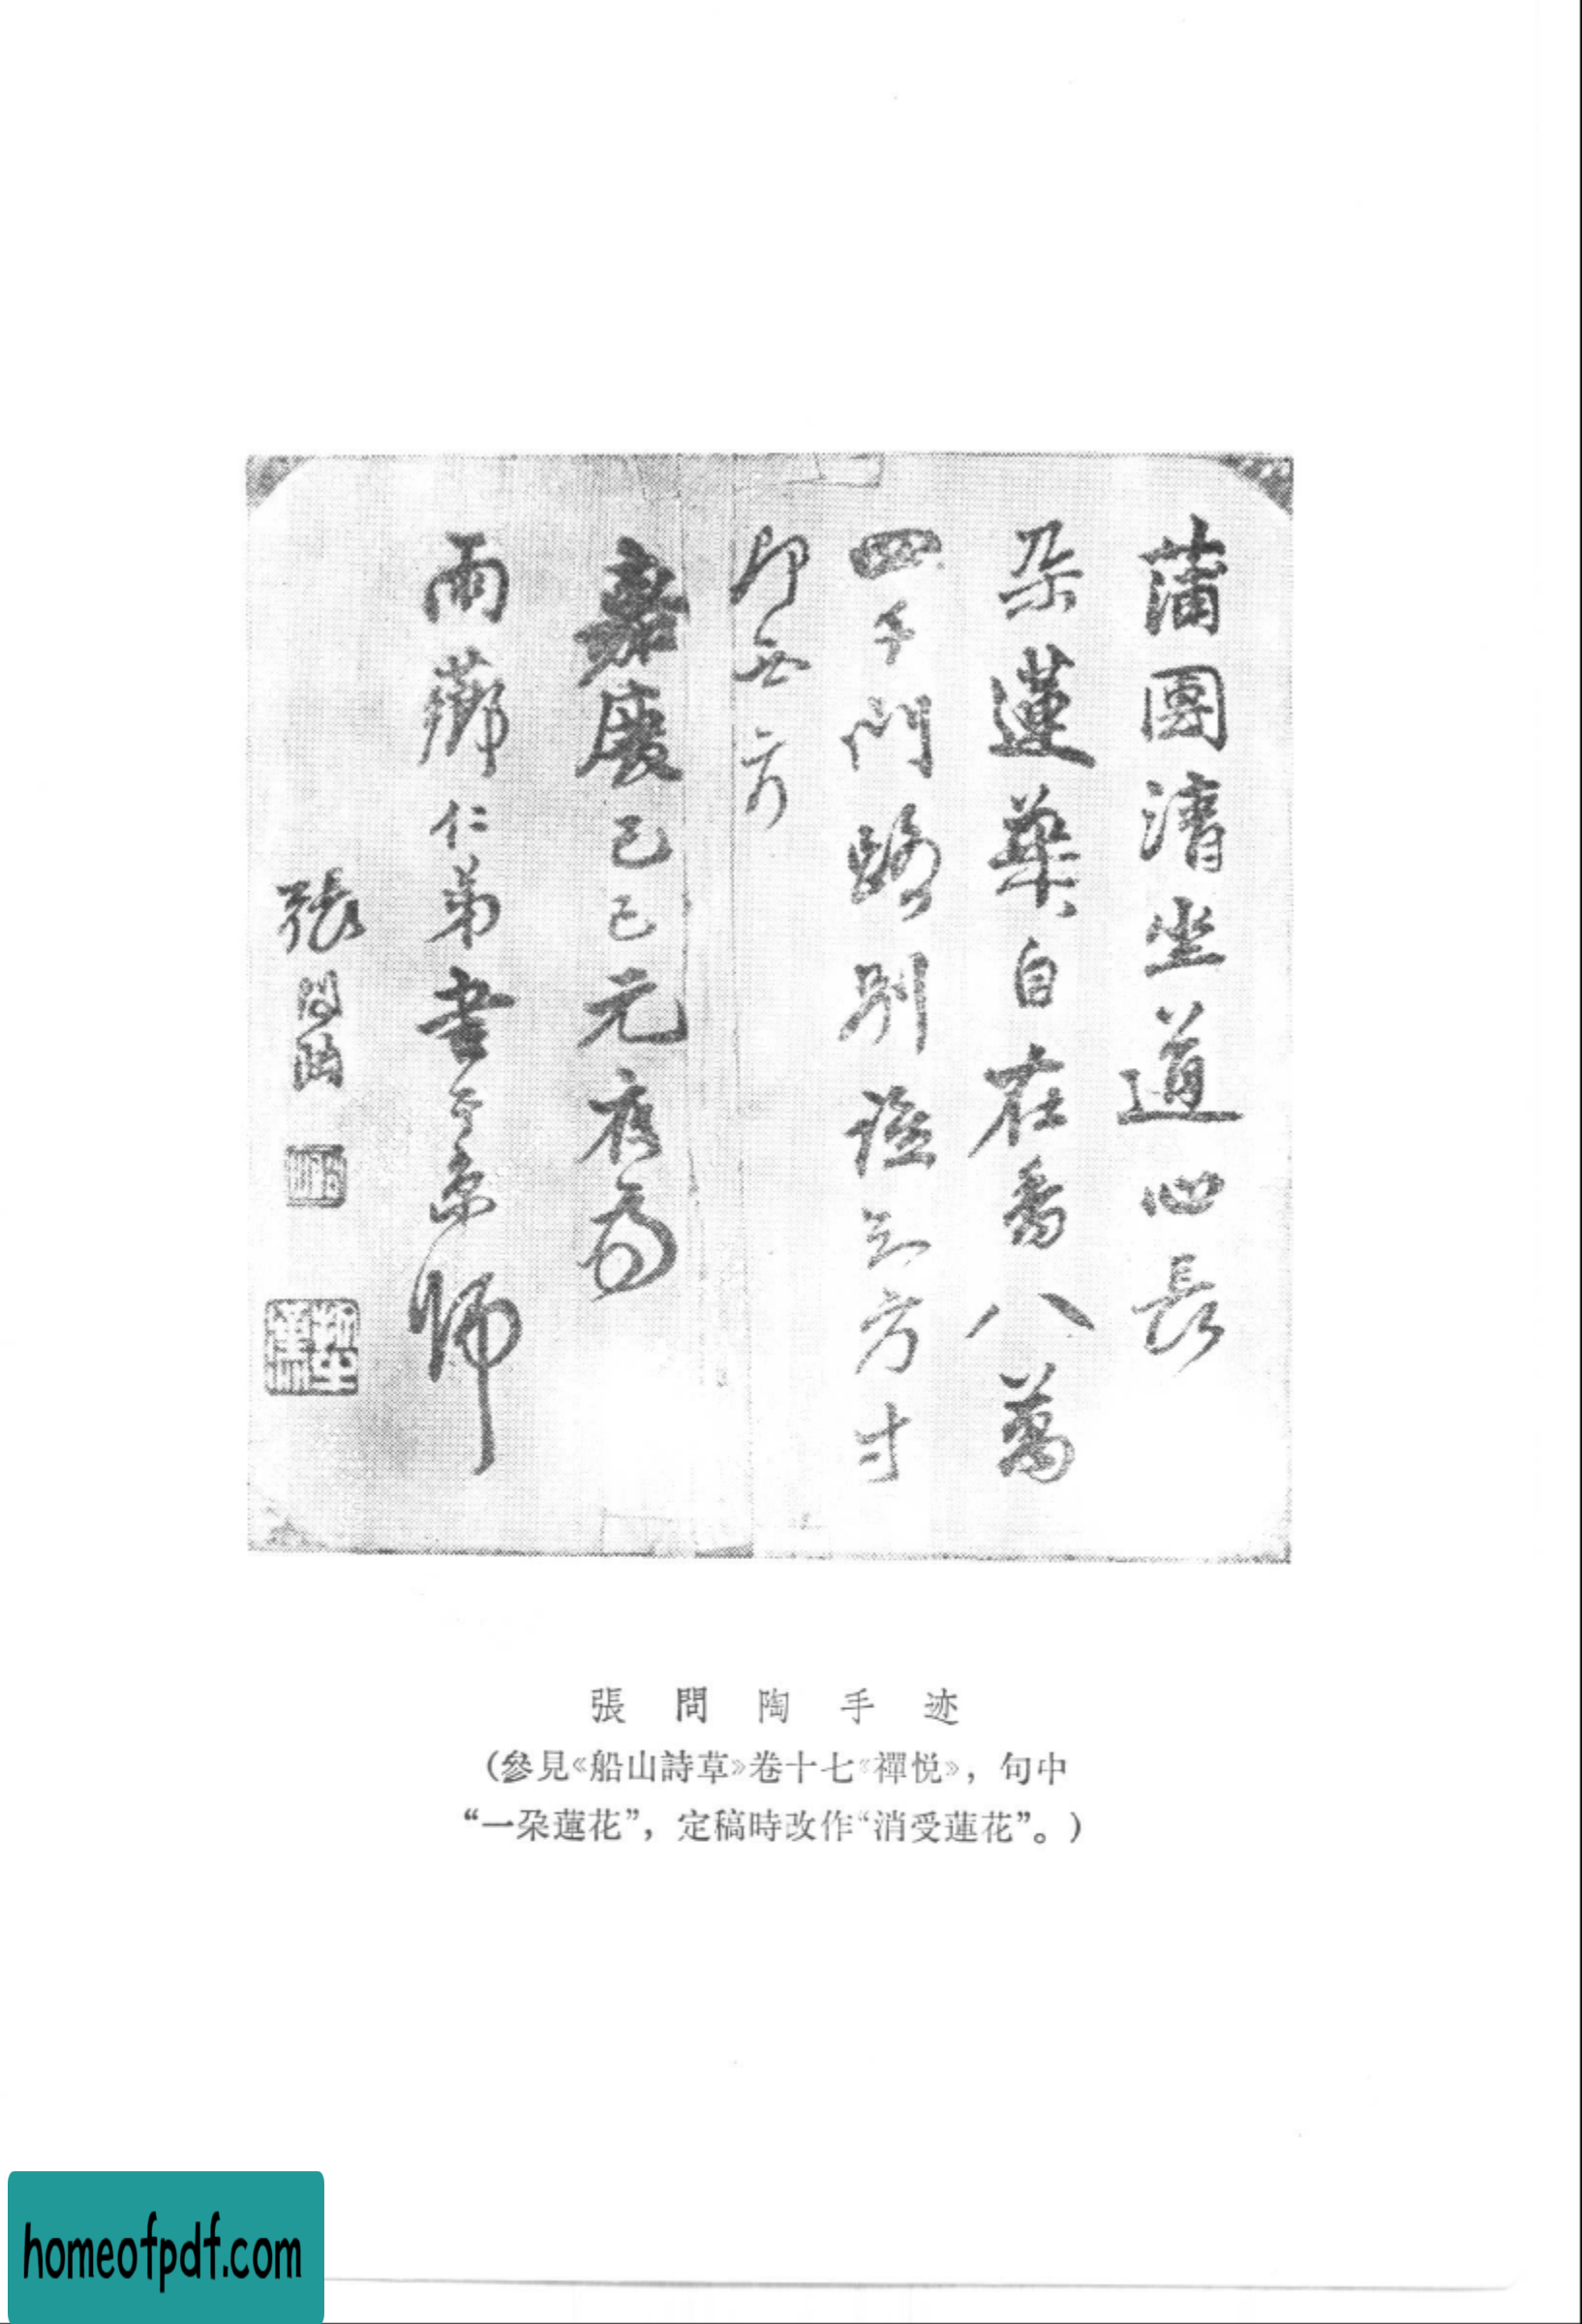 蒲團清坐道心長
朵蓮華自在香八萬
四千門路別誰知方寸
即西方
嘉慶己巳元夜為
雨薌仁弟書于京師
張問陶
張問陶手迹
(參見《船山詩草》卷十七《禪悦》，句中
“一朵蓮花”，定稿時改作“消受蓮花”。)
homeofpdf.com